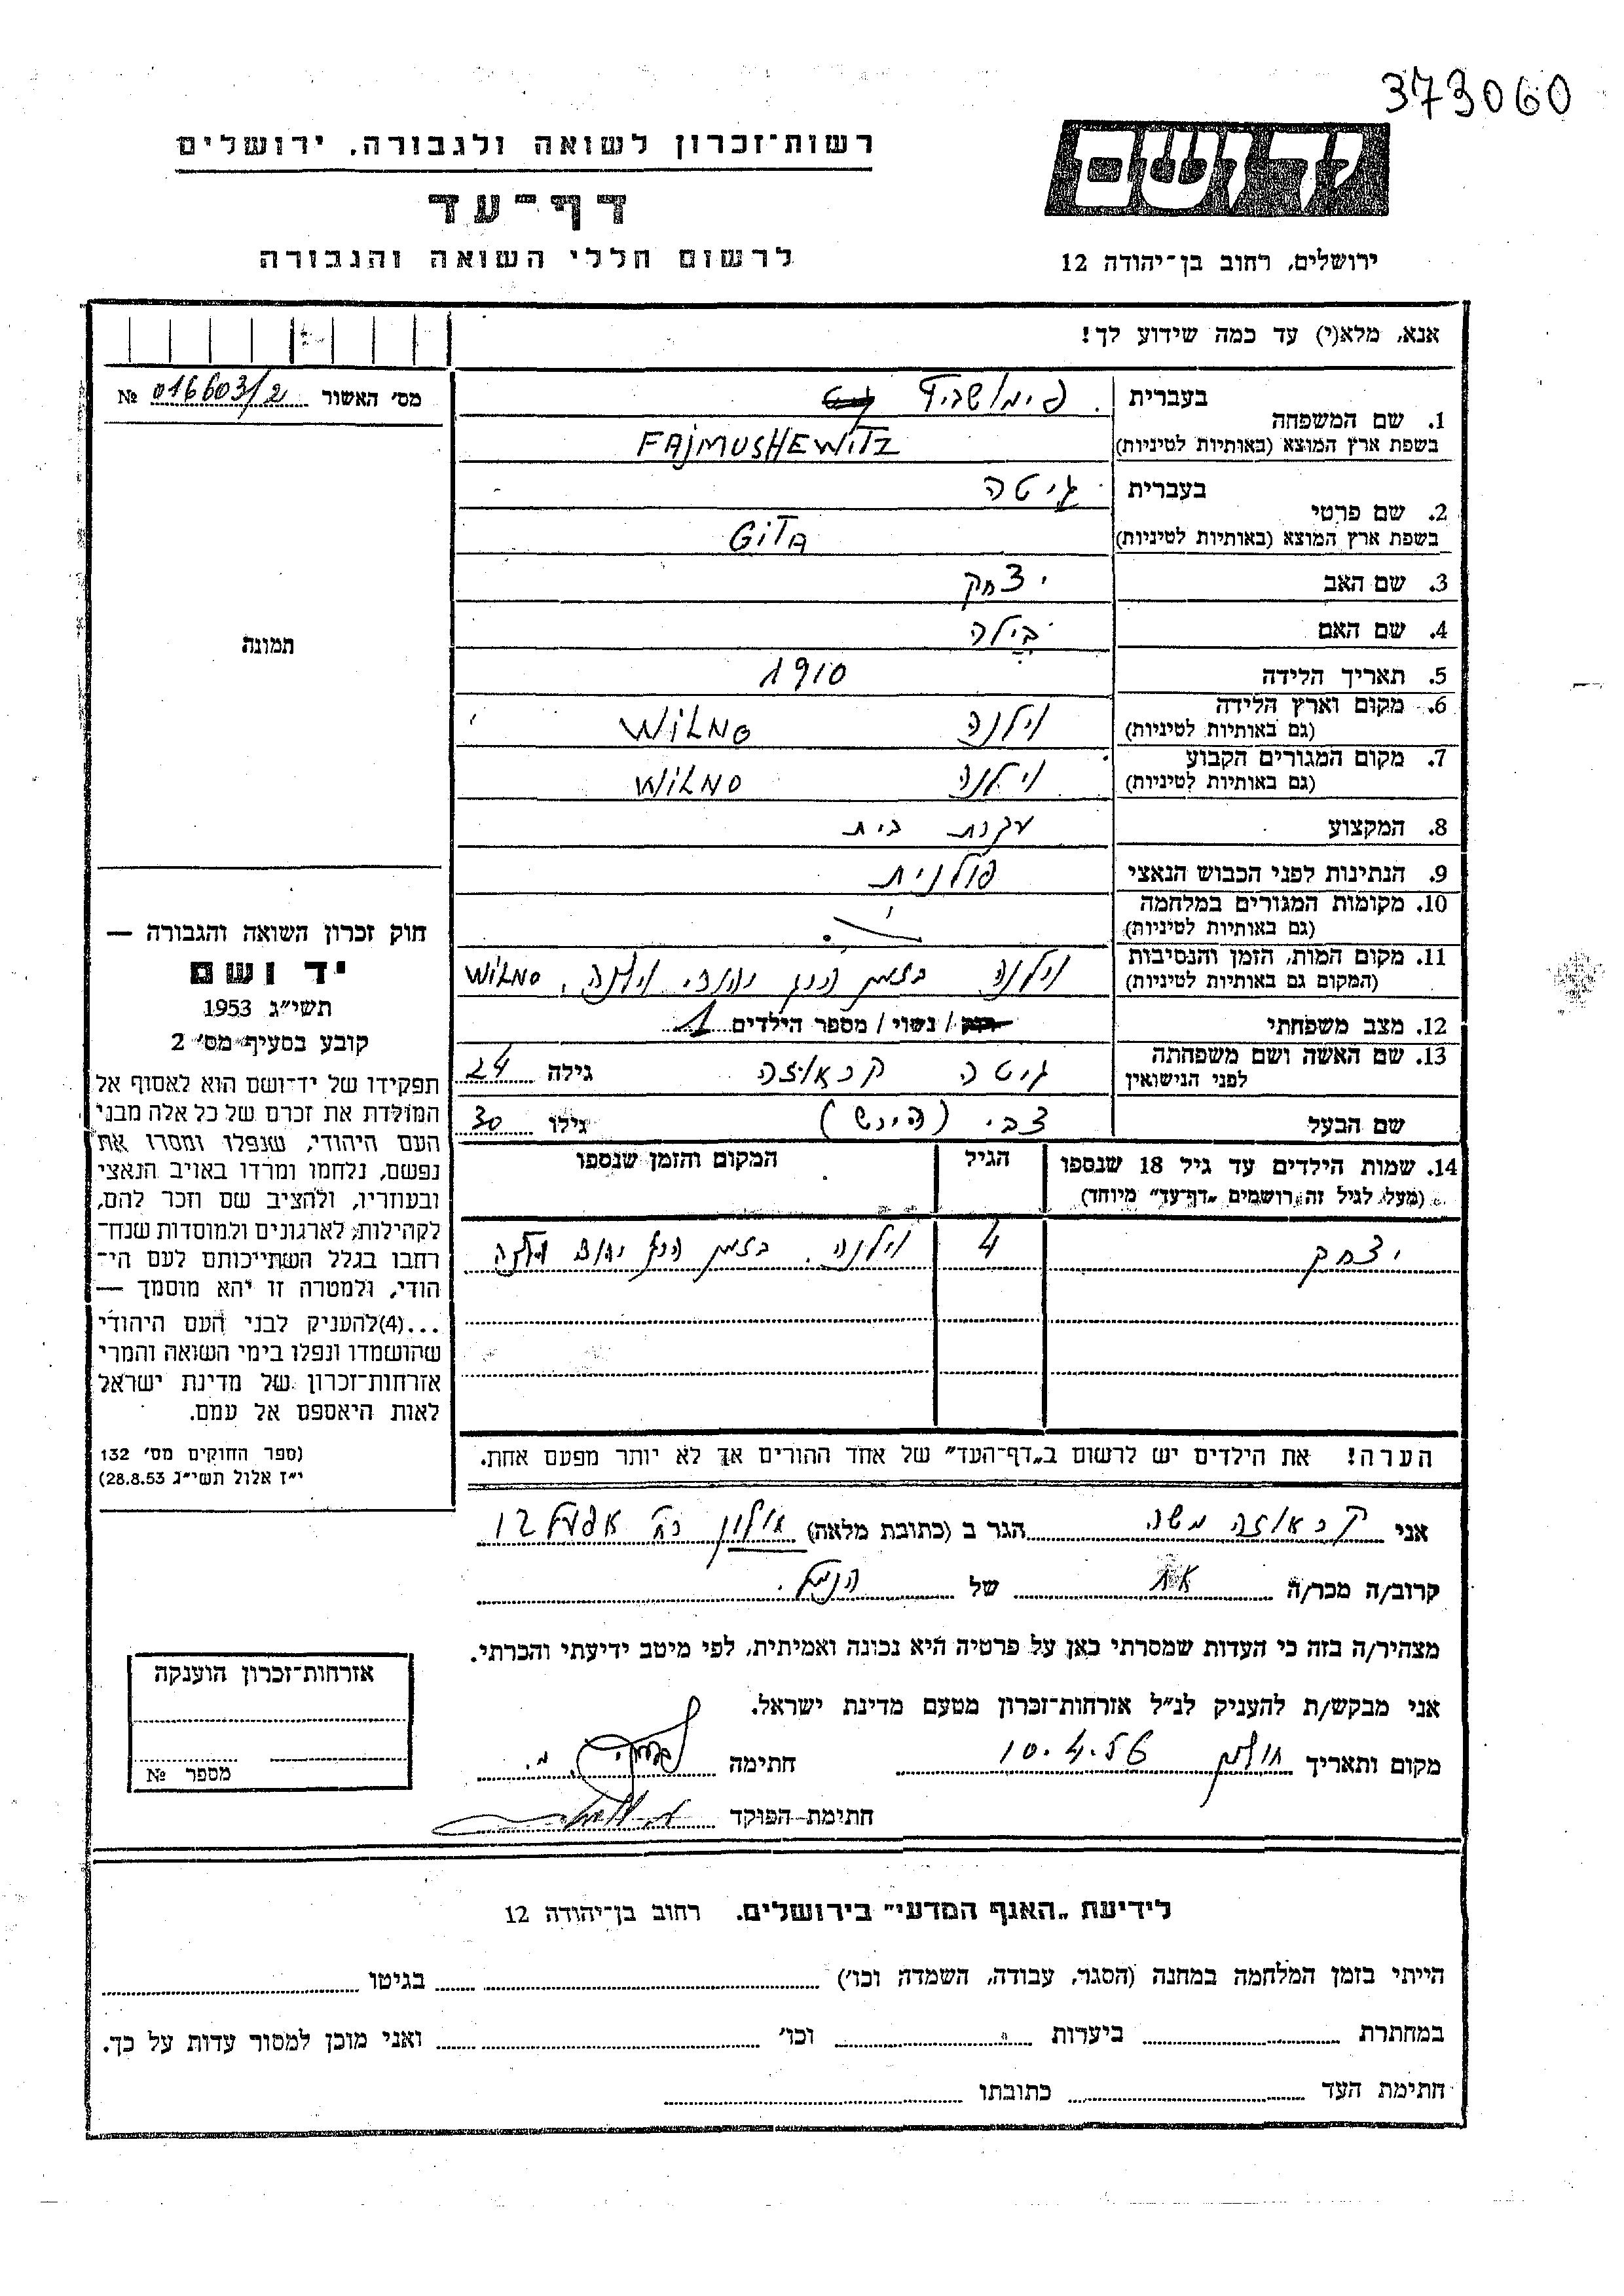 373060
יד ושם
רשות־זכרון לשואה ולגבורה, ירושלים
דף־עד
לרשום חללי השואה והגבורה
ירושלים, רחוב בן־יהודה 12
אנא, מלא(י) עד כמה שידוע לך!
מס׳ האשור 016603/2 №
1. שם המשפחה
בעברית פימושביץ
בשפת ארץ המוצא (באותיות לטיניות) FAJMUSHEWITZ
2. שם פרטי
בעברית גיטה
בשפת ארץ המוצא (באותיות לטיניות) GITA
3. שם האב יצחק
4. שם האם בילה
5. תאריך הלידה 1910
6. מקום וארץ הלידה
(גם באותיות לטיניות) וילנה WILNO
7. מקום המגורים הקבוע
(גם באותיות לטיניות) וילנה WILNO
8. המקצוע עקרת בית
9. הנתינות לפני הכבוש הנאצי פולנית
10. מקומות המגורים במלחמה
(גם באותיות לטיניות)
11. מקום המות, הזמן והנסיבות
(המקום גם באותיות לטיניות) וילנה בזמן הרג יהודי וילנה, WILNO
12. מצב משפחתי רוק / נשוי / מספר הילדים 1
13. שם האשה ושם משפחתה
לפני הנישואין גיטה גילה 24
שם הבעל צבי (הירש) גילו 30
14. שמות הילדים עד גיל 18 שנספו
(מעל לגיל זה רושמים „דף־עד” מיוחד)
הגיל
המקום והזמן שנספו
יצחק 4 וילנה. בזמן הרג יהודי וילנה
הערה! את הילדים יש לרשום ב„דף־העד” של אחד ההורים אך לא יותר מפעם אחת.
תמונה
חוק זכרון השואה והגבורה —
יד ושם
תשי״ג 1953
קובע בסעיף מס׳ 2
תפקידו של יד־ושם הוא לאסוף אל
המולדת את זכרם של כל אלה מבני
העם היהודי, שנפלו ומסרו את
נפשם, נלחמו ומרדו באויב הנאצי
ובעוזריו, ולהציב שם וזכר להם,
לקהילות, לארגונים ולמוסדות שנח־
רחבו בגלל השתייכותם לעם הי־
הודי, ולמטרה זו יהא מוסמך —
...(4)להעניק לבני העם היהודי
שהושמדו ונפלו בימי השואה והמרי
אזרחות־זכרון של מדינת ישראל
לאות היאספם אל עמם.
(ספר החוקים מס׳ 132
י״ז אלול תשי״ג 28.8.53)
אני משה הגר ב (כתובת מלאה) 12
קרוב/ה מכר/ה אח של הנ״ל.
מצהיר/ה בזה כי העדות שמסרתי כאן על פרטיה היא נכונה ואמיתית, לפי מיטב ידיעתי והכרתי.
אני מבקש/ת להעניק לנ״ל אזרחות־זכרון מטעם מדינת ישראל.
מקום ותאריך חולון 10.4.56 חתימה
חתימת־הפוקד
אזרחות־זכרון הוענקה
מספר №
לידיעת „האגף המדעי” בירושלים. רחוב בן־יהודה 12
הייתי בזמן המלחמה במחנה (הסגר, עבודה, השמדה וכו׳) בגיטו
במחתרת ביערות וכו׳ ואני מוכן למסור עדות על כך.
חתימת העד כתובתו